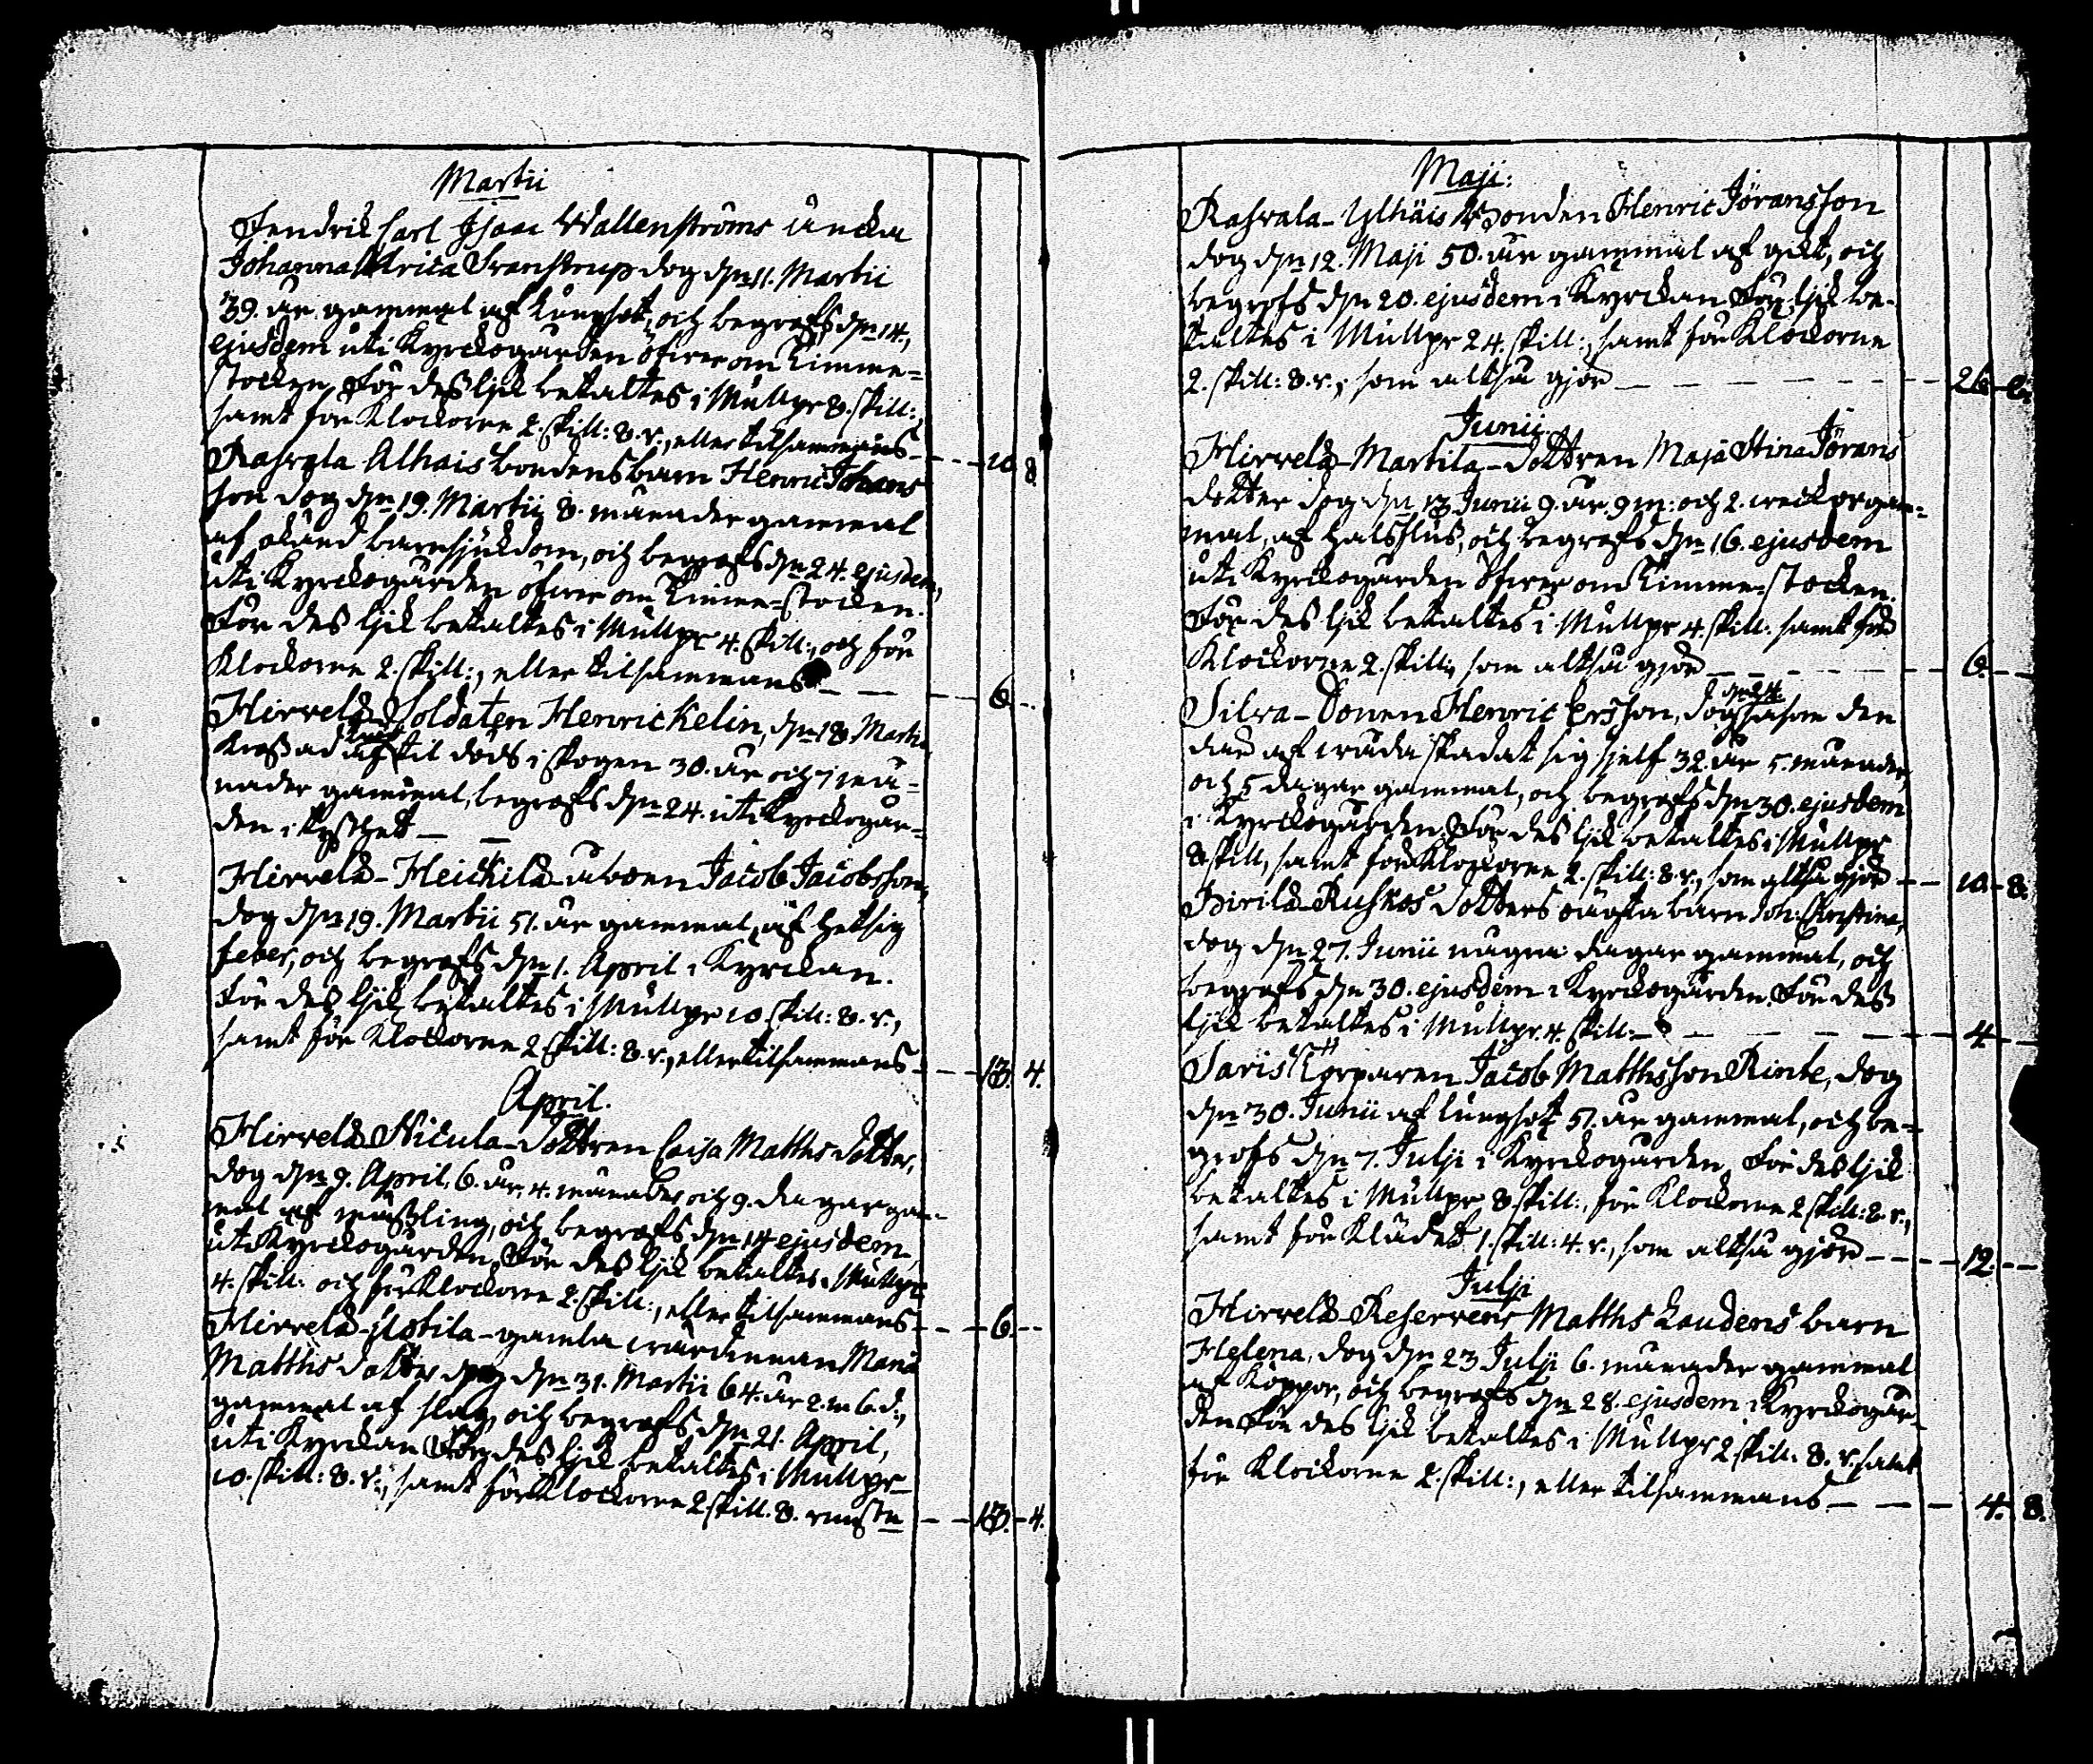 Martii
Fendrik Carl Isaac Wallenströms Encka
Johanna Ulrica Svanstrup dog d:n 11. Martii
39. år gammal af lungsot, och begrofs d:n 14.,
ejusdem uti Kyrckogården öfver om Timme-
stocken, För des lijk betaltes i Mullpr 8. skill:,
samt för Klockorne 2. skill: 8. r., eller tilsammans - - - 10. 8.
Rasvala Alhais bondens barn Henric Johans
son dog d:n 19. Martii 8. månader gammal
af okänd barnsjukdom, och begrofs d:n 24. ejusdem,
uti Kyrckogården öfver om Timme-stocken.
För des lijk betaltes i Mullpr 4. skill:, och för
Klockorne 2. skill:, eller tilsammans - - - 6. -
Hirvelä Soldaten Henric Kelin, d:n 18 Martii
til döds i skogen 30. år och 7 må-
nader gammal, begrofs d:n 24. uti Kyrckogår-
den i tysthet - -
Hirvelä-Heickilä-åboen Jacob Jacobsson,
dog d:n 19. Martii 51. år gammal, af hetsig
feber, och begrofs d:n 1. April i Kyrckan.
För des lijk betaltes i Mullpr 10. skill: 8. r.,
samt för Klockorne 2 skill: 8. r., eller tilsammans - - - 13. 4.
April.
Hirvelä Nicula-Dottren Caisa Matths dotter,
dog d:n 9. April, 6. år 4. månader och 9. dagar gam-
mal af mässling, och begrofs d:n 14 ejusdem,
uti Kyrckogården, För des lijk betaltes i Mullpr
4. skill: och för Klockorne 2. skill:, eller tilsammans - - - 6. - -
Hirvelä- gamla värdinnan Maria
Matths dotter dog d:n 31. Martii 64. år 2. m 6. d.,
gammal af slag, och begrofs d:n 21. April,
uti Kyrckan För des lijk betaltes i Mullpr
10. skill: 8. r:, samt för Klockorne 2 skill. 8. runst:n - - 13. - 4.
Maji:
Rasvala-Ylhäis Bonden Henric Jöransson
dog d:n 12. Maji 50. år gammal af gikt, och
begrofs d:n 20. ejusdem i Kyrckan För lijk be-
taltes i Mullpr 24. skill:, samt för Klockorne
2. skill: 8. r., som altså gjör - - - 26. - 8.
Junii.
Hirvelä-Martila-Dottren Maja Stina Jörans
dotter dog d:n 13 Junii 9. år 9 m: och 2. weckor gam-
mal, af halsflus, och begrofs d:n 16. ejusdem
uti Kyrckogården öfver om Timme-stocken.
För des lijk betaltes i Mullpr 4. skill. samt för
Klockorne 2. skill:, som altså gjör - - - 6. - -
d:n 24.
Henric Ersson, dog såsom den
där af våda skadat sig sjelf 32. år 5. månader,
och 5 dagar gammal, och begrofs d:n 30. ejusdem
i Kyrckogården. För des lijk betaltes i Mullpr
8 skill, samt för Klockorne 2. skill: 8. r., som altså gjör - - 10. - 8.
Pirilä-Ruskos dotters oägta barn Joh: Christina,
dog d:n 27. Junii några dagar gammal, och
begrofs d:n 30. ejusdem i Kyrckogården. För des
lijk betaltes i Mullpr. 4. skill: - - - 4. - -
Saris Korparen Jacob Matthsson Rinbe, dog
d:n 30. Junii af lungsot 51. år gammal, och be-
grofs d:n 7. Julji i Kyrckogården, För des lijk
betaltes i Mullpr 8 skill:, för Klockorne 2 skill: 8. r.,
samt för Klädet 1. skill: 4. r., som altså gjör - - - 12. - -
Julji
Hirvelä-Reservens Matths Laudens barn
Helena, dog d:n 23 Julji 6. månader gammal
af Koppor, och begrofs d:n 28. ejusdem i Kyrckogår-
den För des lijk betaltes i Mullpr 2 skill. 8. r. samt
för Klockorne 2. skill:, eller tilsammans - - - 4. 8.